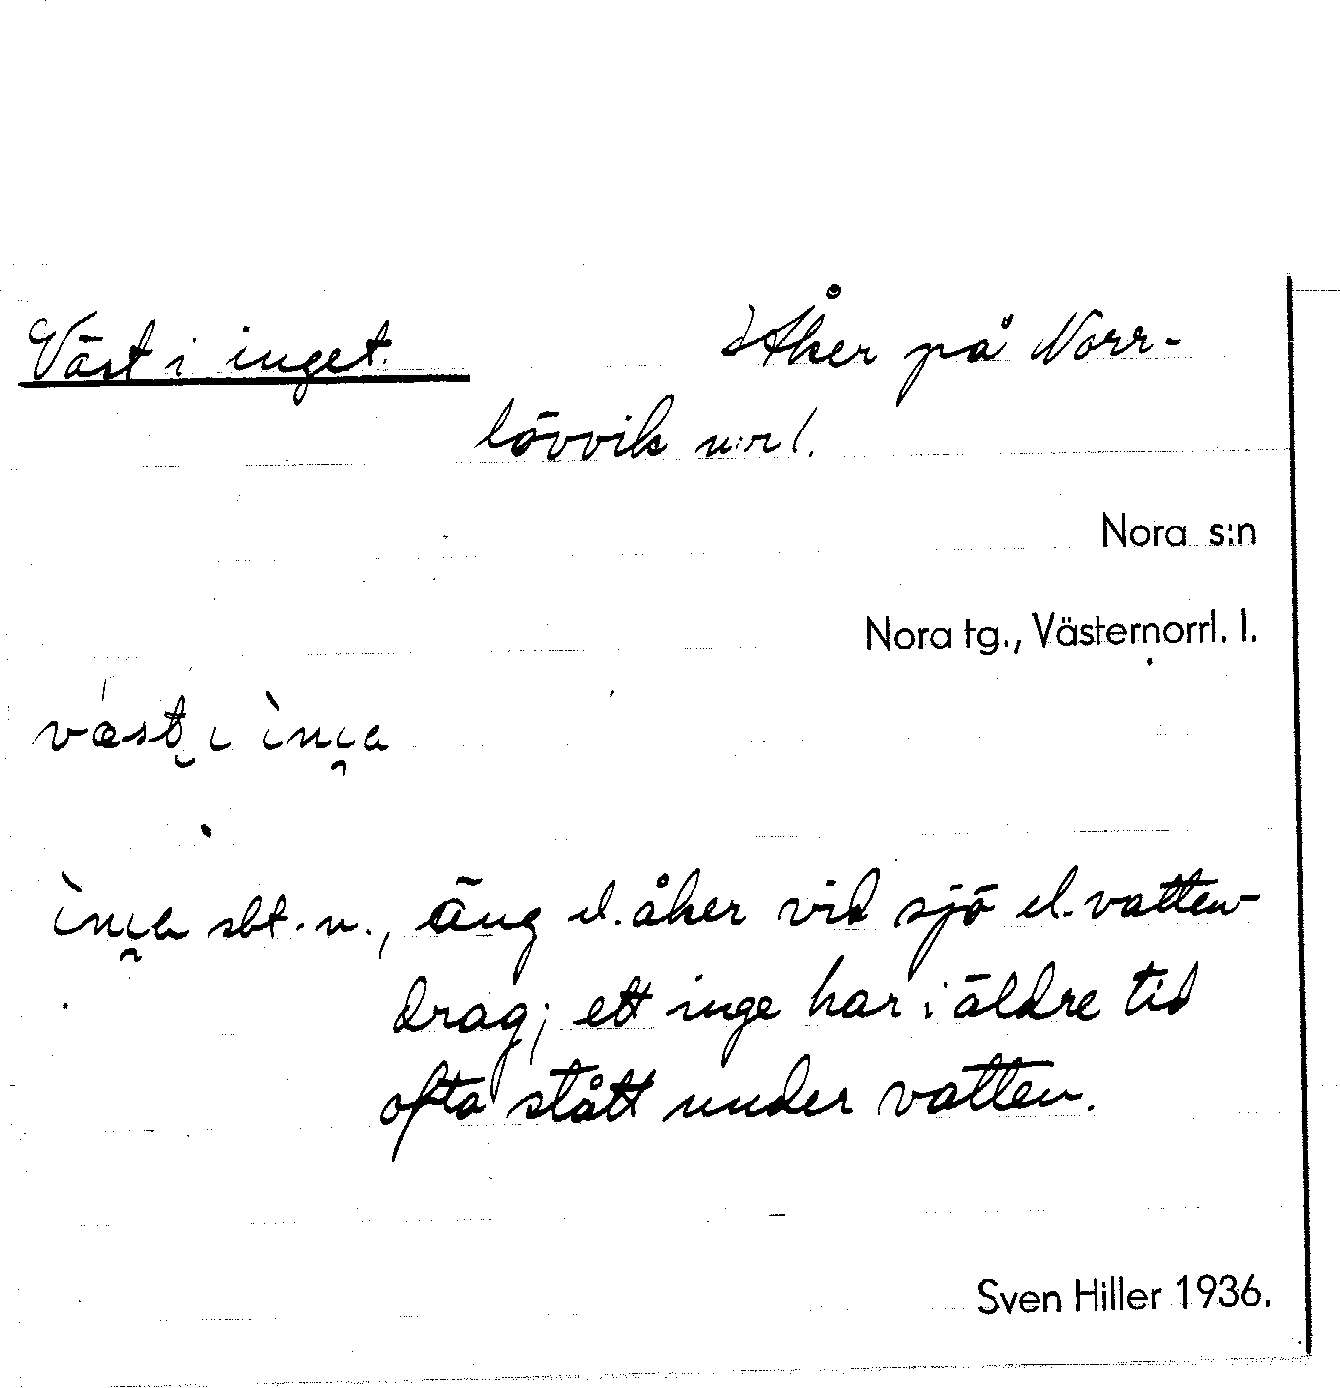 Väst i inget. Åker på Norr-
lövvik n:r 1.
Nora s:n
Nora tg., Västernorrl. l.
väst i
sbt. n., äng el. åker vid sjö el. vatten-
drag; ett inge har i äldre tid
ofta stått under vatten.
Sven Hiller 1936.